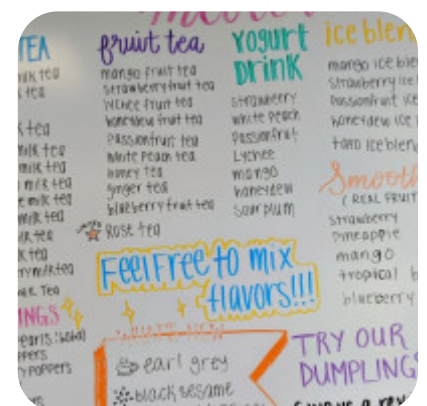 TEA
milk tea
milk tea
milk tea
milk tea
milk tea
milk tea
milk tea
milk tea
fruit tea
mango fruit tea
strawberry fruit tea
lychee fruit tea
honeydew fruit tea
passionfruit tea
white peach tea
honey tea
ginger tea
blueberry fruit tea
Rose tea
yogurt
drink
strawberry
white peach
Passionfruit
Lychee
mango
honeydew
sour plum
ice blen
mango ice ble
strawberry ice
passionfruit ice
honeydew ice
taro ice blen
Smooth
(REAL FRUIT
strawberry
pineapple
mango
tropical b
blueberry
Feel Free to mix
flavors!!!
INGS
poppers
WHAT'S NEW
earl grey
black sesame
TRY OUR
DUMPLINGS